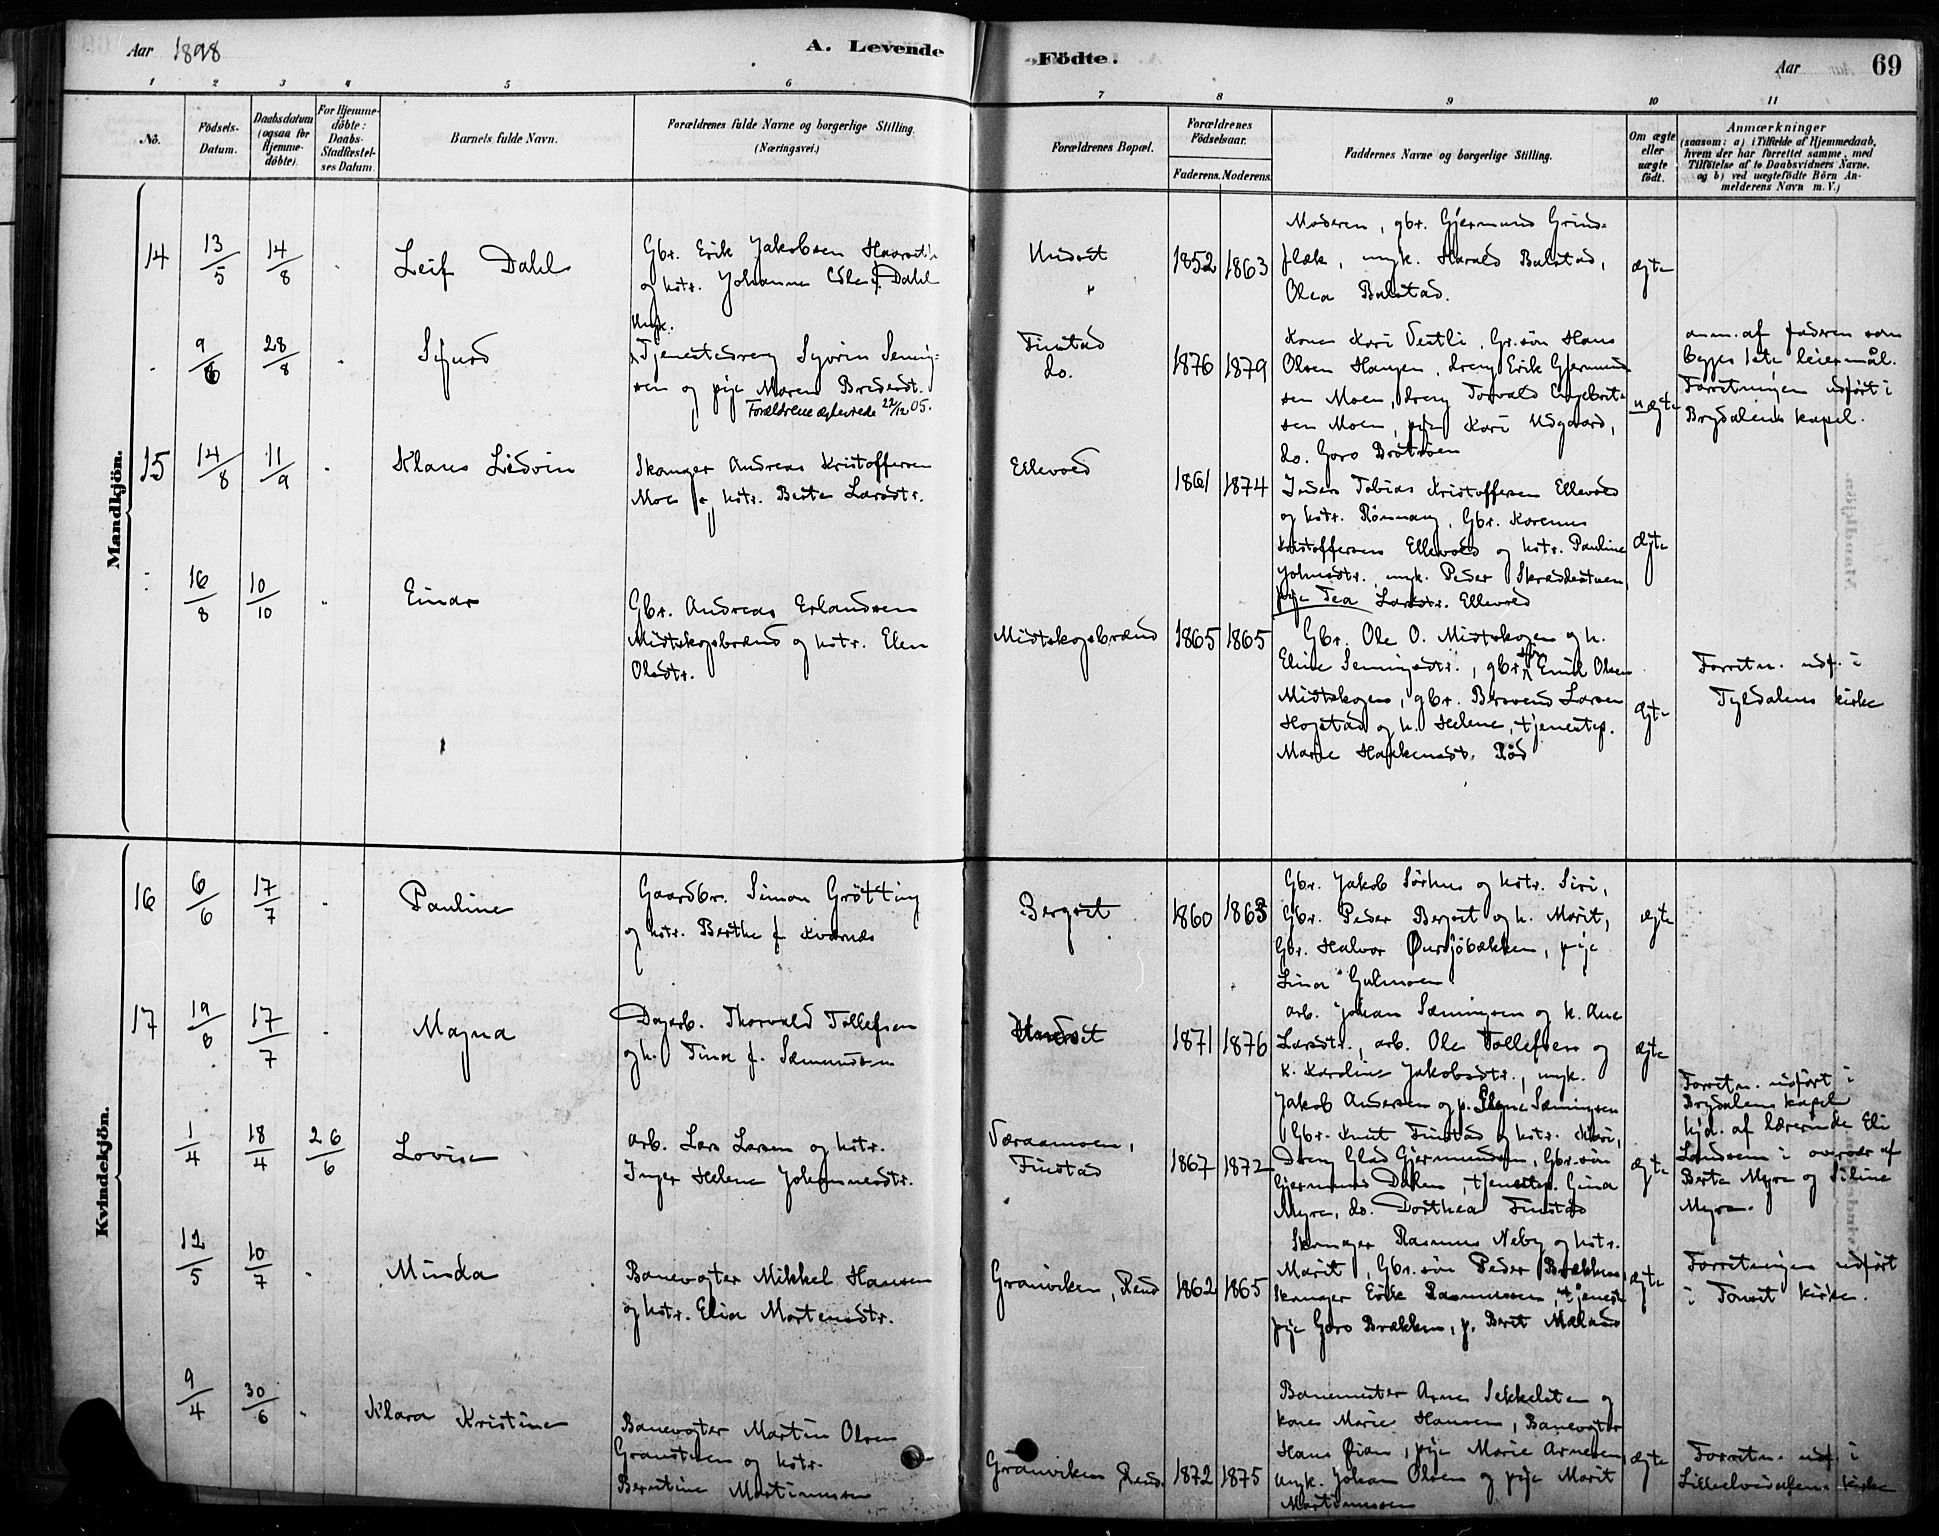 Aar 1898
A. Levende
Födte.
Aar
69
1 2 3 4 5 6 7 8 9 10 11
No.
Födsels-Datum.
Daabsdatum (ogsaa for Hjemme-döbte).
For Hjemme-döbte: Daabs-Stadfæstel-ses Datum.
Barnets fulde Navn.
Forældrenes fulde Navne og borgerlige Stilling.
(Næringsvei.)
Forældrenes Bopæl.
Forældrenes Födselsaar.
Faderens. Moderens.
Faddernes Navne og borgerlige Stilling.
Om ægte eller uægte födt.
Anmærkninger
(saasom: a) i Tilfælde af Hjemmedaab,
hvem der har forrettet samme, med
Tilföielse af to Daabsvidners Navne.
og b) ved uægtefödte Börn An-
melderens Navn m. V.)
Mandkjön.
14 13/5 14/8 Leif Dahl
Gbr. Erik Jakobsen
og hstr. Johanne f. Dahl
Undset
"
1852 1863
Moderen, gbr. Gjermund Grind-
flæk, ungk. Harald Bulstad,
Olea Bulstad.
ægte
9/6 28/8 Sigurd
Ungk.
Tjenestedreng Syvrin Sening-
sen og pige Maren Bredesdt.
Forældrene ægteviede 22/12 05.
Finstad
do.
1876 1879
Kone Kari Vestli, Gr.søn Hans
Olsen Haugen, dreng Erik Gjermund
sen Moen, dreng Torvald Engebrit-
sen Moen, pige Kari Udgaard,
do. Goro Bråtveen
uægte
anm. af faderen som
begges 1ste leiermål.
Forretningen udført i
Brydalens kapel.
15 14/8 11/9 Klaus Ledvin
Skomager Andreas Kristoffersen
Moe og hstr. Berte Larsdtr.
Ellevold
1861 1874
Inders Tobias Kristoffersen Ellevold
og hstr. Rønnaug, Gbr. Karenus
Kristoffersen Ellevold og hstr. Pauline
Johnsdtr., ungk. Peder Skræddestuen,
pige Tea Larsdtr. Ellevold
ægte
16/8 10/10 Einar
Gbr. Andreas Erlandsen
Midtskogsbrænd og hstr. Elen
Olsdtr.
Midtskogsbrænd
1865 1865
Gbr. Ole O. Midtskogen og h.
Eline Semingsdtr., gbr. søn Emil Olsen
Midtskogen, gbr. Brovend Larsen
Hogstad og h. Helene, tjenestep.
Marie Haakensdt. Rød
ægte
Forretn. udf. i
Tyldalens kirke
Kvindekjön.
16 6/6 17/7 Pauline
Gaardbr. Simon Grötting
og hstr. Berthe f. Kvarnæs
Bergset
1860 1863
Gbr. Jakob Sørhus og hstr. Siri,
Gbr. Peder Bergset og h. Marit,
Gbr. Halvor Øursjöbækken, pige
Lina Gulmoen
ægte
17 19/6 17/7 Magna
Dagarb. Thorvald Tollefsen
og h. Tina f. Sæmundsen
1871 1876
Arb. Johan Sæmingsen og h. Ane
Larsdtr., arb. Ole Tollefsen og
h. Karoline Jakobsdtr., ungk.
Jakob Andersen og p. Sæmingsen
ægte
1/4 18/4 26/6 Lovise
Arb. Lars Larsen og hstr.
Inger Helene Johannesdtr.
Væraamoen,
Finstad
1867 1872
Gbr. Knut Finstad og hstr. Kari,
Dreng Glad Gjermundsen, Gbr.-søn
Gjermund Dalen, tjenestep. Gina
Myre, do. Dorthea Finstad
ægte
Forretn. udført i
Brydalens kapel
hjd. af lærerinde Eli
Landsem i overvær af
Berte Myre og Siline
Myre.
12/5 10/7 Minda
Banevogter Mikkel Hansen
og hstr. Elia Mortensdtr.
Granviken, Rend
1862 1865
Skomager Rasmus Neby og hstr.
Marit, Gbr. søn Peder Brækken,
Skomager Eirik Rasmussen, tjeneste-
pige Goro Brækken, p. Berit Mæland
ægte
Forretningen udført
i Tønset kirke.
9/4 30/6 Klara Kristine
Banevogter Martin Olsen
Granstuen og hstr.
Berntine Martinussen
Granviken Rend.
1872 1875
Banemester Arne Sekkelsten og
kone Marie Hansen, Banevogter
Hans Øian, pige Marie Arnesen,
ungk. Johan Olsen og pige Marit
Martinussen
ægte
Forretn. udf. i
Lilleelvedalens kirke